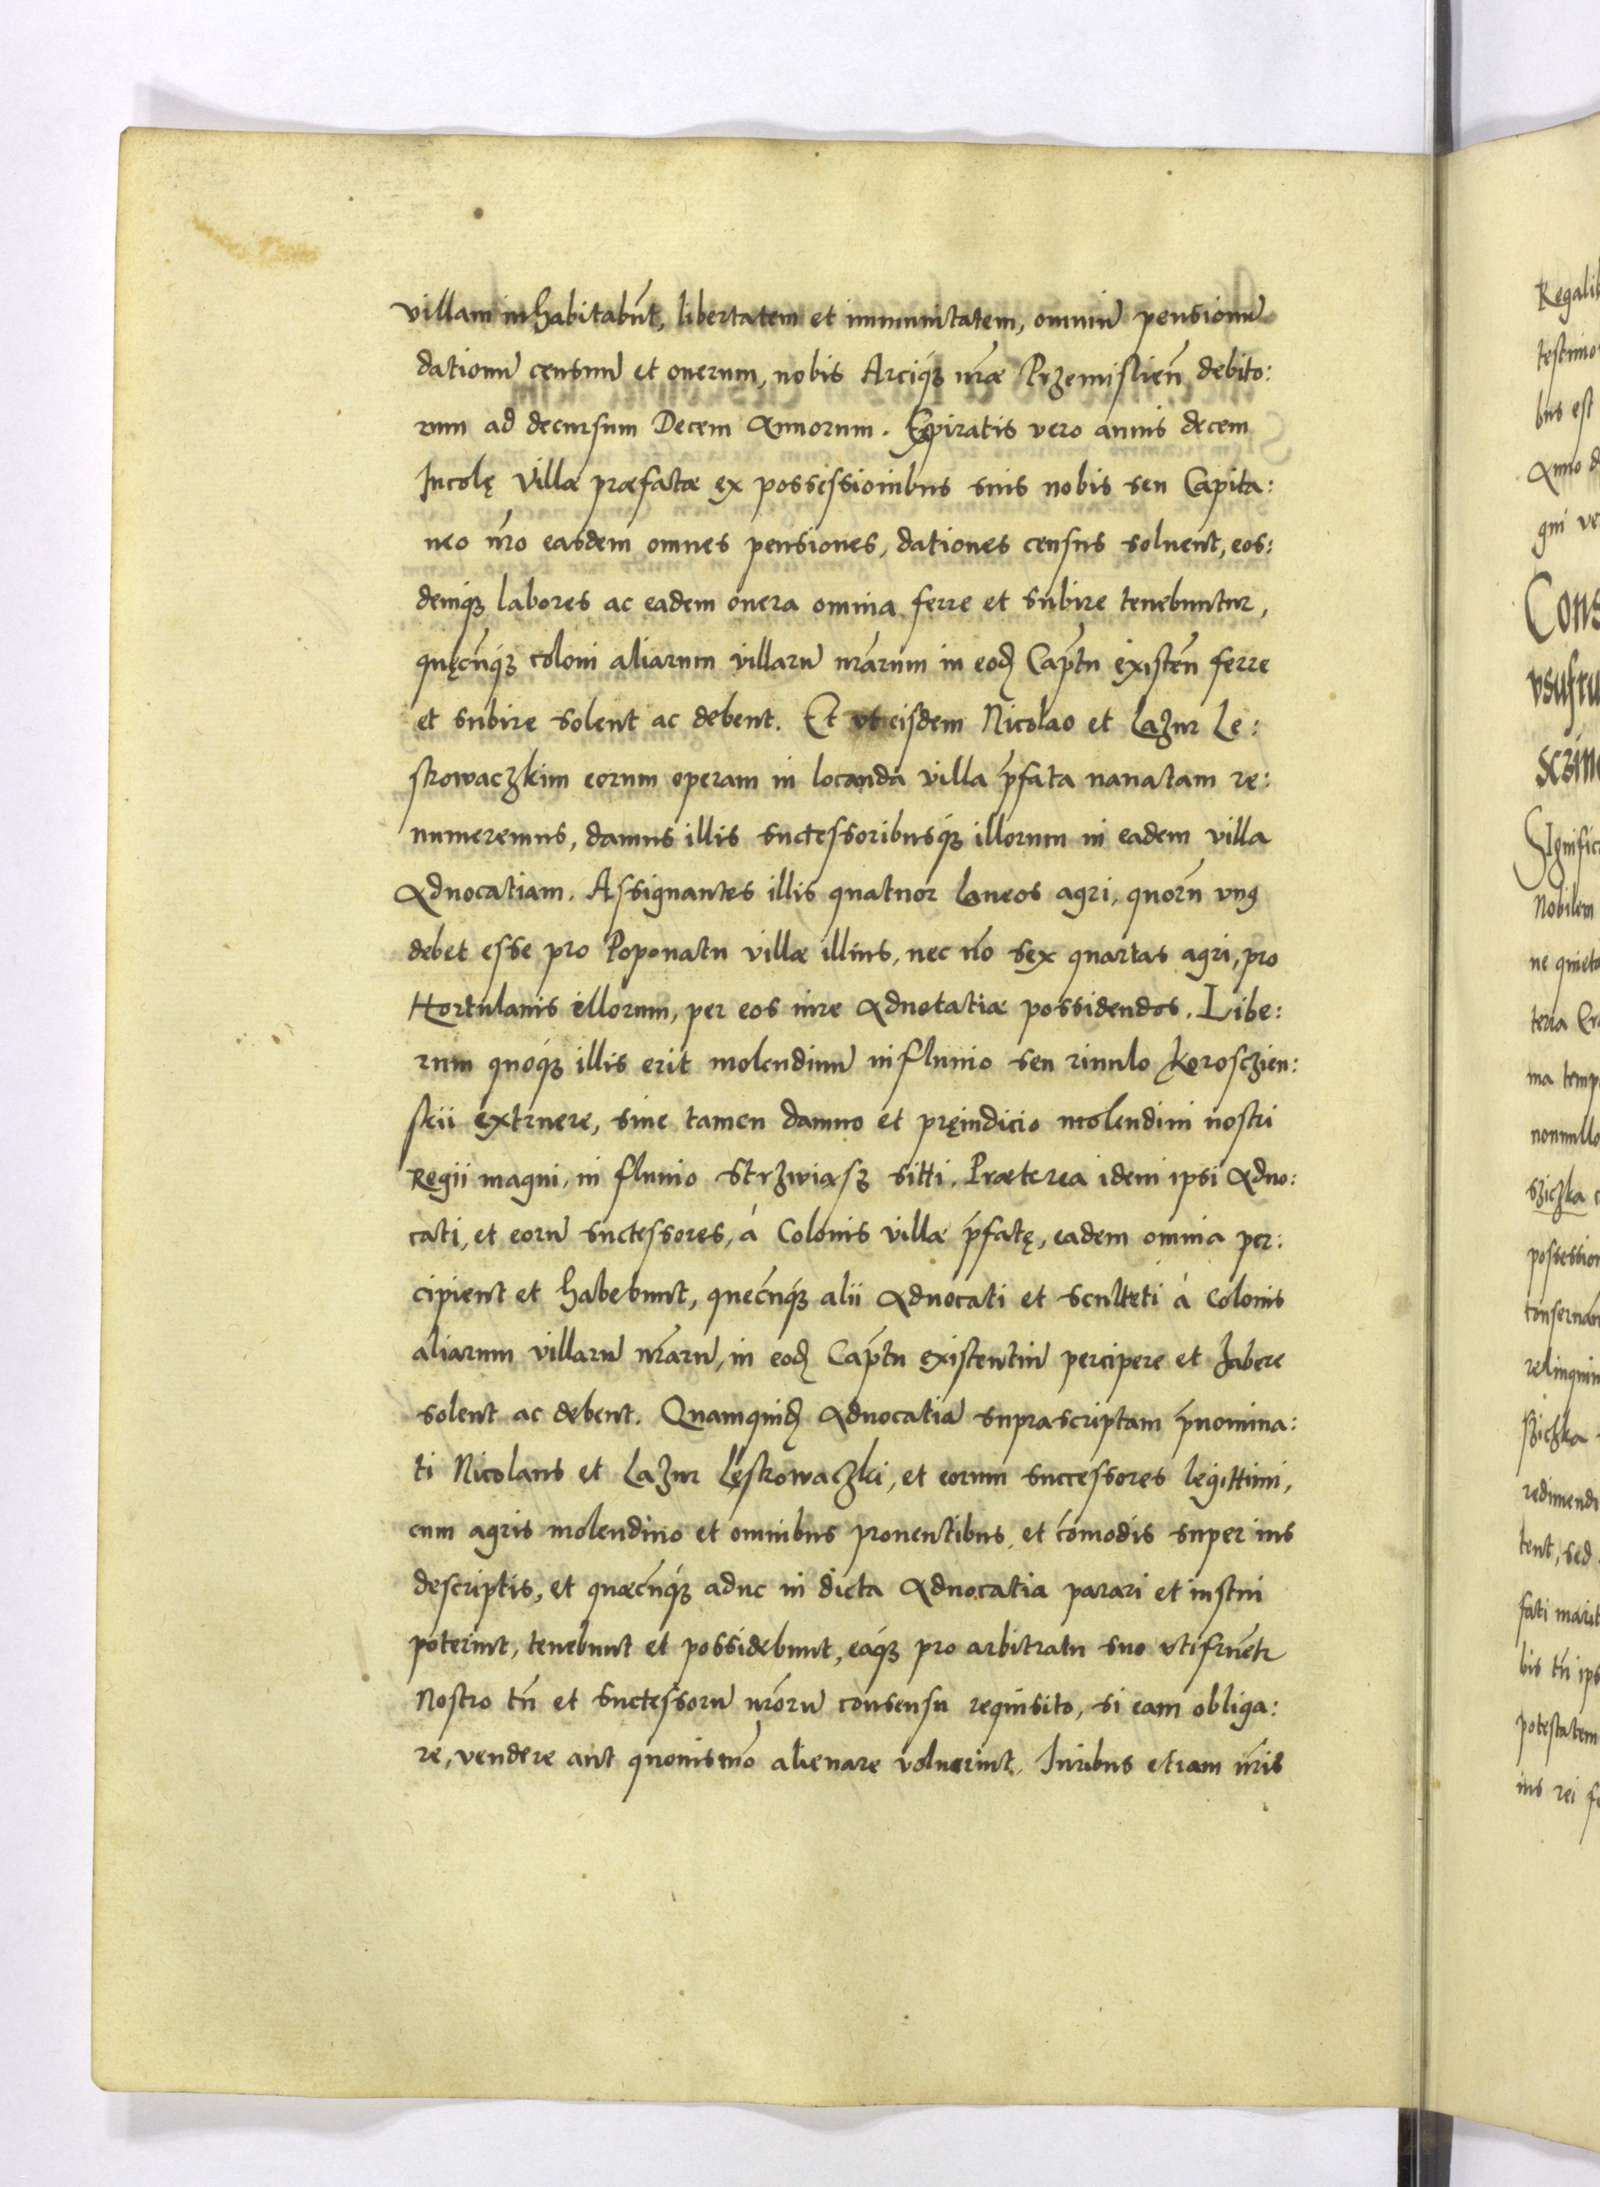 villam inhabitabūt, libertatem et immunitatem, omniū pensionū
dationū censuū et onerum, nobis Arciq; nr̄æ Przemislieñ debito:
rum ad decursum Decem Annorum. Expiratis vero annis decem
Incolę Villæ præfatæ ex possessionibus suis nobis seu Capita:
neo nr̄o easdem omnes pensiones, dationes census soluent, eos:
demq; labores ac eadem onera omnia ferre et subire tenebuntur,
quęcūq; coloni aliarum villarū nr̄arum in eod Cap̄tu existeñ ferre
et subire solent ac debent. Et vt eisdem Nicolao et Lazur Le:
strowaczkim eorum operam in locanda villa p̄fata nauatam re:
numeremus, damus illis successoribusq; illorum in eadem villa
Aduocatiam. Assignantes illis quatuor laneos agri, quorū vnq
debet esse pro Poponatu villæ illius, nec nō sex quartas agri, pro
Hortulanis illorum, per eos iure Aduocatiæ possidendos. Libe:
rum quoq; illis erit molendinū in fluuio seu riuulo Korosczien:
skii extruere, sine tamen damno et pręiudicio molendini nostri
Regii magni, in fluuio Strzwiasz sitti. Præterea idem ipsi Aduo:
cati, et eorū successores, á Colonis villæ p̄fatę, eadem omnia per:
cipient et habebunt, quecūq; alii Aduocati et sculteti á Colonis
aliarum villarū nr̄arū, in eod Cap̄tu existentiū percipere et habere
solent ac debent. Quamquid Aduocatiā suprascriptam p̄nomina:
ti Nicolaus et Lazur Lestrowaczki, et eorum successores legittimi,
cum agris molendino et omnibus prouentibus, et cōmodis superius
descriptis, et quæcūq; aduc in dicta Aduocatia parari et instrui
poterint, tenebunt et possidebunt, eaq; pro arbitratu suo vtifruētr
Nostro tñ et successorū nr̄orū consensu requisito, si eam obliga:
re, vendere aut quouismō alienare voluerint. Iuribus etiam nr̄is